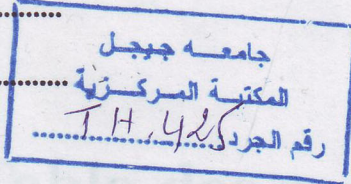 جامعه جيجل
المكتبة المركزية
رقم الجرد TH.425